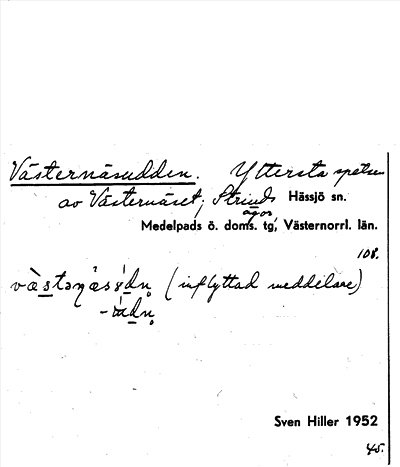 Västernäsudden. Yttersta spetsen
av Västernäset; Strinds Hässjö sn.
ägor.
Medelpads ö. doms. tg, Västernorrl. län.
108.
(inflyttad meddelare)
Sven Hiller 1952
45.